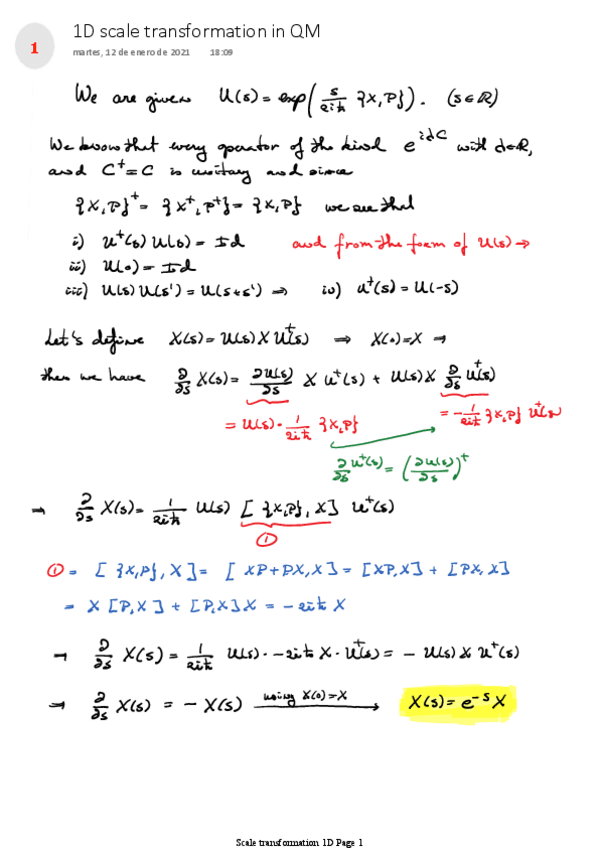 1D scale transformation in QM
1
martes, 12 de enero de 2021 18:09
We are given U(s) = exp( s/2iħ {X,P} ). (s∈ℝ)
We know that every operator of the kind e^{idC} with d∈ℝ,
and C⁺=C is unitary and since
{X,P}⁺ = {X⁺,P⁺} = {X,P} we see that
i) U⁺(s) U(s) = Id and from the form of U(s) ⇒
ii) U(0) = Id
iii) U(s) U(s') = U(s+s') ⇒ iv) U⁺(s) = U(-s)
Let's define X(s) = U(s) X U⁺(s) ⇒ X(0)=X →
then we have ∂/∂s X(s) = ∂U(s)/∂s X U⁺(s) + U(s) X ∂/∂s U⁺(s)
= U(s) · 1/2iħ {X,P} = - 1/2iħ {X,P} U⁺(s)
∂/∂s U⁺(s) = (∂U(s)/∂s)⁺
→ ∂/∂s X(s) = 1/2iħ U(s) [ {X,P}, X ] U⁺(s)
①
① = [ {X,P}, X ] = [ XP+PX, X ] = [XP,X] + [PX,X]
= X [P,X] + [P,X] X = -2iħ X
→ ∂/∂s X(s) = 1/2iħ U(s) · -2iħ X · U⁺(s) = - U(s) X U⁺(s)
→ ∂/∂s X(s) = - X(s) using X(0)=X → X(s) = e^{-s} X
Scale transformation 1D Page 1